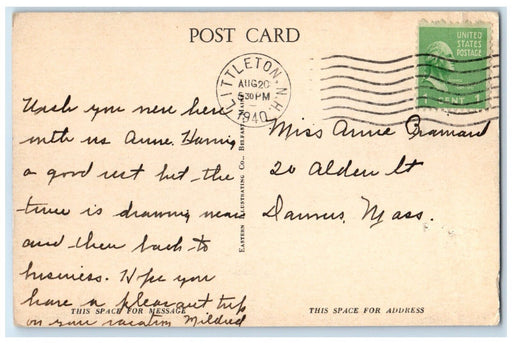 POST CARD
UNITED
STATES
POSTAGE
1 CENT 1
LITTLETON, N.H.
AUG 20
5 30 PM
1940
Wish you were here
with us Anne. Having
a good rest but the
time is drawing near
and then back to
business. Hope you
have a pleasant trip
on your vacation Mildred
EASTERN ILLUSTRATING CO., BELFAST, MAINE
Miss Anne
20 Alden St
Danvers, Mass.
THIS SPACE FOR MESSAGE
THIS SPACE FOR ADDRESS